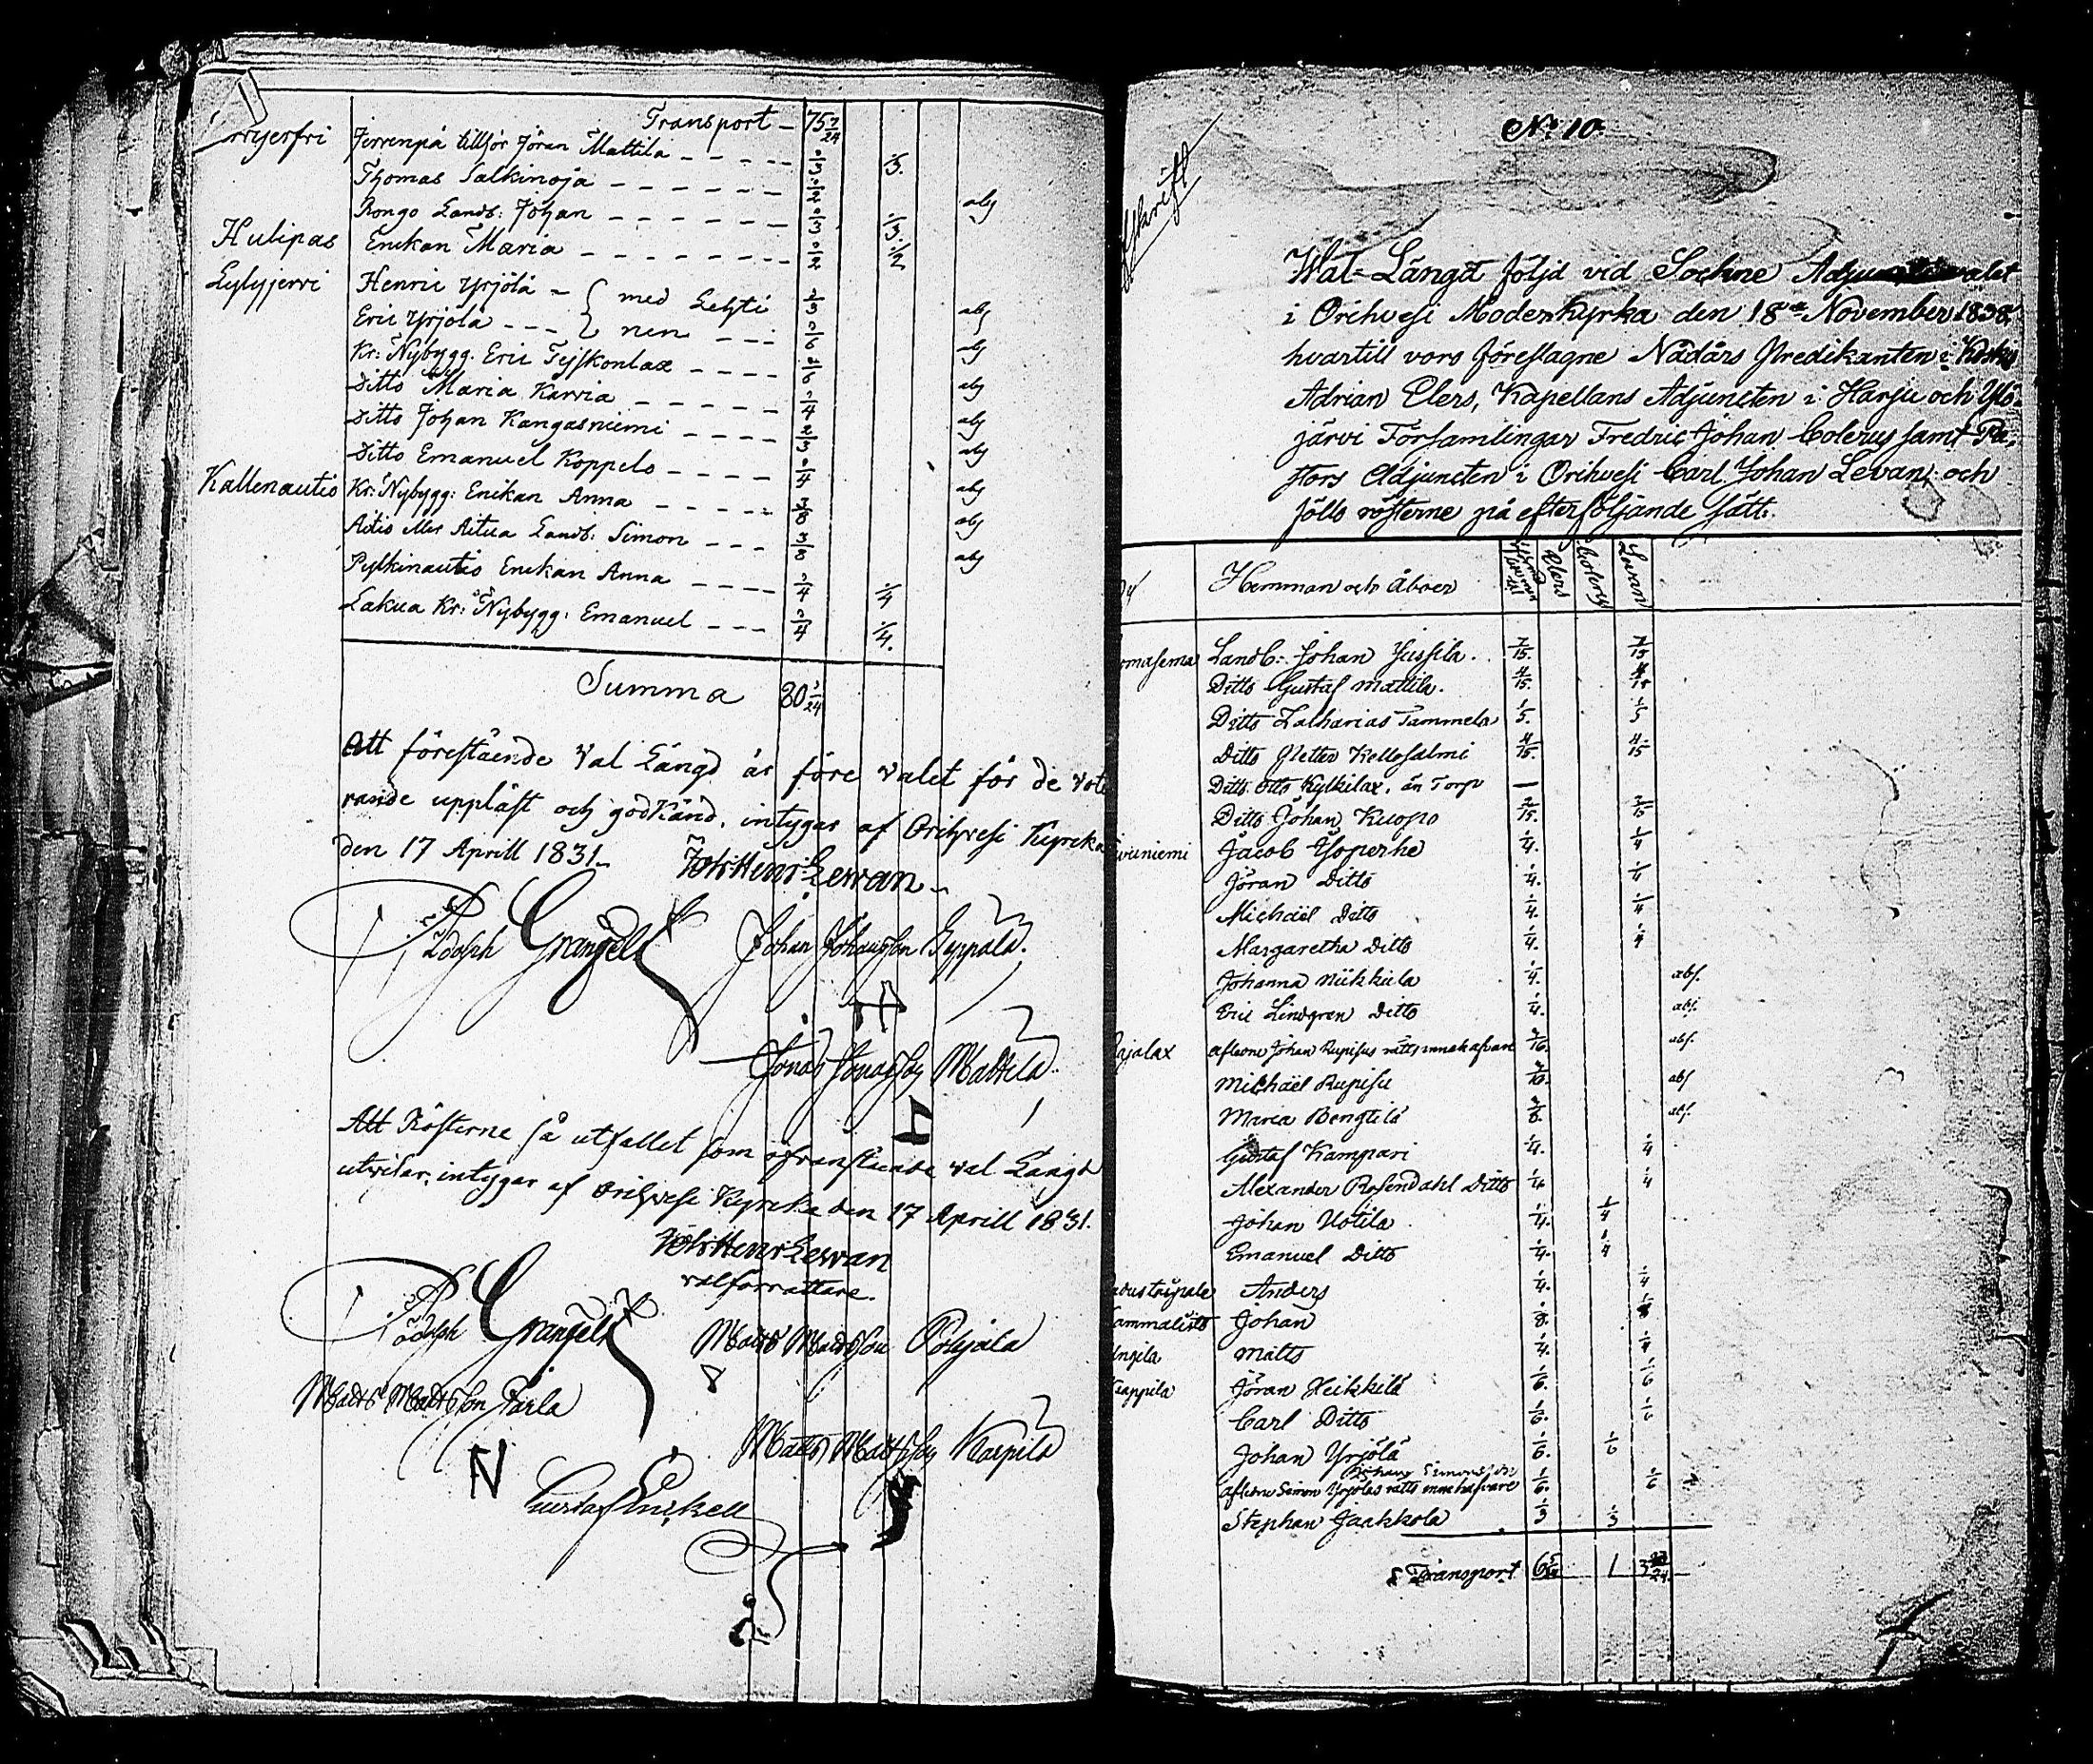 Transport – 75 7/24
Jerrenpä tillhör Jöran Mattila – – – – – 1/3 1/3.
Thomas Salkinoja – – – – – – – 1/2
Rongo Landb: Johan – – – – – – 1/3 1/3. abs
Hulipas Enckan Maria – – – – – – – – 1/2 1/2
Lylyjerri Henric Yrjölä –
Eric Yrjölä – – – med Lehti nen – – – abs
Kr: Nybygg. Eric Tejskonlax – – – – 1/6 abs
Ditto Maria Karvia – – – – – 1/4 abs
Ditto Johan Kangasniemi – – – – 2/3 abs
Ditto Emanuel Koppelo – – – – 1/4 abs
Kallenautio Kr: Nybygg: Enckan Anna – – – – – 3/8 abs
Aitua Landb: Simon – – – 3/8 abs
Pylkinautio Enckan Anna – – – – 1/4 1/4 abs
Lakua Kr: Nybygg: Emanuel – – – 1/4 1/4.
Summa 80 1/24
Att förestående Val Längd är före valet för de vote
rande uppläst och godkänd, intygas af Orihvesi Kyrcka
den 17 Aprill 1831.
Joh: Henr: Lewan
Adolph Grangell Johan Johansson Eyppälä.
Jonas Jonasson Mattila.
Att Rösterne så utfallet som ofvanstående val Längd
utvisar, intygar af Orihvesi Kyrcka den 17 Aprill 1831.
Joh: Henr: Lewan
valförrättare.
Adolph Grangell Matts Mattsson Pohjala
Matts Mattsson Parla
Matts Mattsson Karpila
Gustaf Enckell
No 10.
Afskrift
Wal-Längd följd vid Sockne Adjunctsvalet
i Orihvesi Moderkyrka den 18de November 1838,
hvartill voro föreslagne Nådårs Predikanten i
Adrian Elers, Kapellans Adjuncten i Harju och Ylö-
järvi Församlingar Fredric Johan Colerus samt Pa-
stors Adjuncten i Orihvesi Carl Johan Levan, och
föllo rösterne på efterföljande sätt.
By Hemman och Åboer Elers Colerus Levan
Landb: Johan Jussila. 7/15. 7/15
Ditto Gustaf Mattila. 4/15. 4/15
Ditto Zacharias Tammela 1/5. 1/5
Ditto Petter Kellosalmi 4/15. 4/15
Ditto Otto Kylkilax, än Torp —
Ditto Johan Kuopo 2/15. 2/15
Jacob Yoperhe 1/4. 1/4
Jöran Ditto 1/4. 1/4
Michaël Ditto 1/4. 1/4
Margaretha Ditto 1/4. 1/4
Johanna Niikkula 1/4. abs.
Eric Lindgren Ditto 1/4. abs.
Afledne Johan Rupisus rätts innehafvare abs.
Michaël Rupisu abs
Maria Bengtilä abs.
Gustaf Kampari 1/4. 1/4
Alexander Rosendahl Ditto 1/4 1/4
Johan Uotila 1/4. 1/4
Emanuel Ditto 1/4. 1/4
Anders 1/4. 1/4
Johan 1/8. 1/8
Matts 1/4. 1/4
Jöran Heikkilä 1/6. 1/6
Carl Ditto 1/6. 1/6
Johan Yrjölä 1/6. 1/6
Johan Simonsson
Aflidne Simon Yrjöläs rätts innehafvare 1/6. 1/6
Stephan Jaakkola 1/3 1/3
Transport 6 1 3